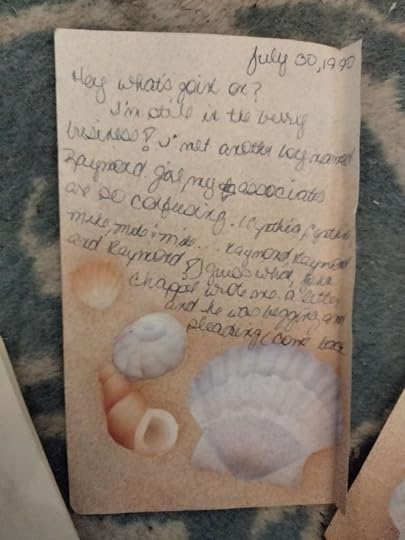 July 30, 1990
Hey what's goin on?
I'm still in the berry
business! I met another boy named
Raymond. gosh, my associates
are so confusing. (Cynthia, Cynthia
mike, mike & mike... Raymond, Raymond
and Raymond!) guess what,
Chappie wrote me a letter
and he was begging and
pleading (come back